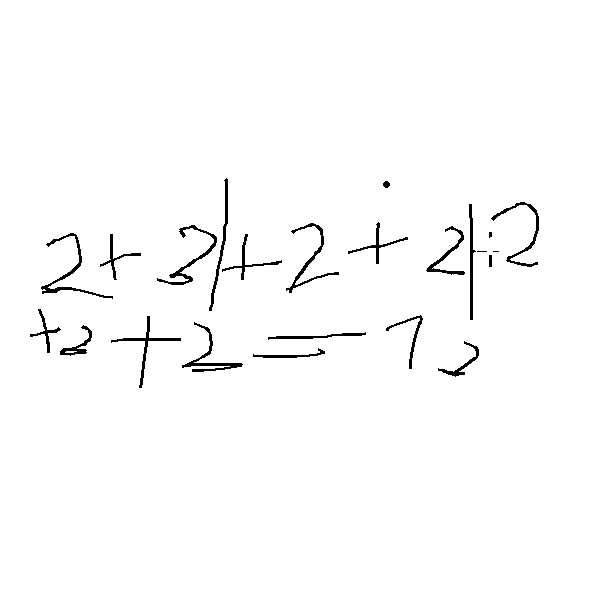 2+3|+2+2|÷2
+2+2=12